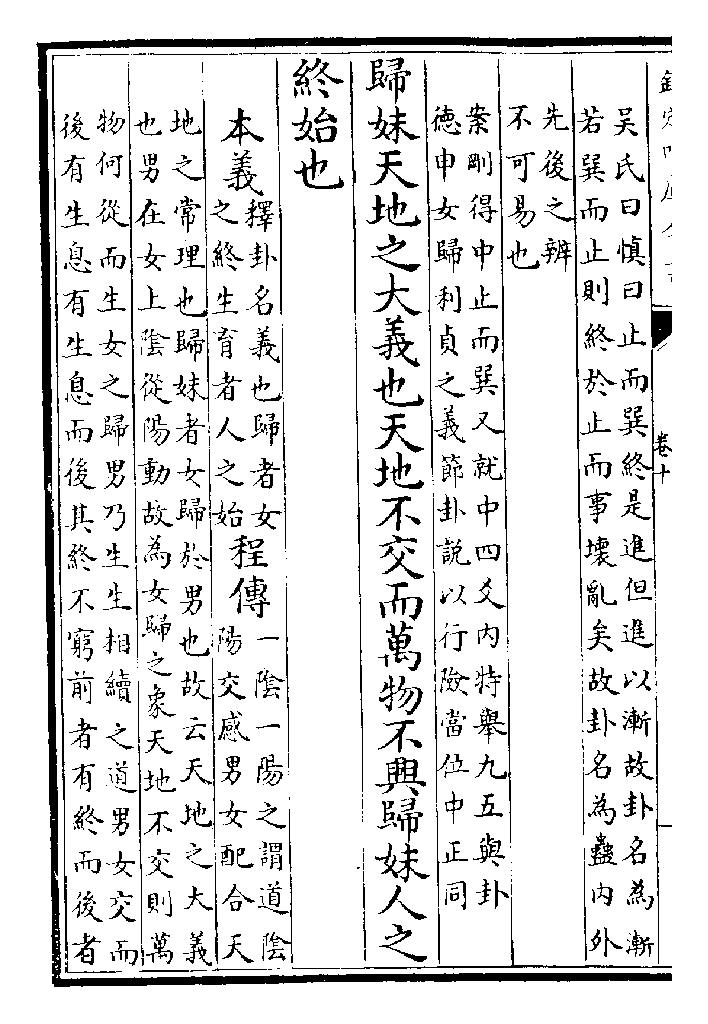 欽定四庫全書
卷十
吳氏曰慎曰止而巽終是進但進以漸故卦名為漸
若巽而止則終於止而事壞亂矣故卦名為蠱内外
先後之辨
不可易也
案剛得中止而巽又就中四爻内特舉九五與卦
德申女歸利貞之義節卦説以行險當位中正同
歸妹天地之大義也天地不交而萬物不興歸妹人之
終始也
本義
釋卦名義也歸者女
之終生育者人之始
程傳
一陰一陽之謂道陰
陽交感男女配合天
地之常理也歸妹者女歸於男也故云天地之大義
也男在女上陰從陽動故為女歸之象天地不交則萬
物何從而生女之歸男乃生生相續之道男女交而
後有生息有生息而後其終不窮前者有終而後者